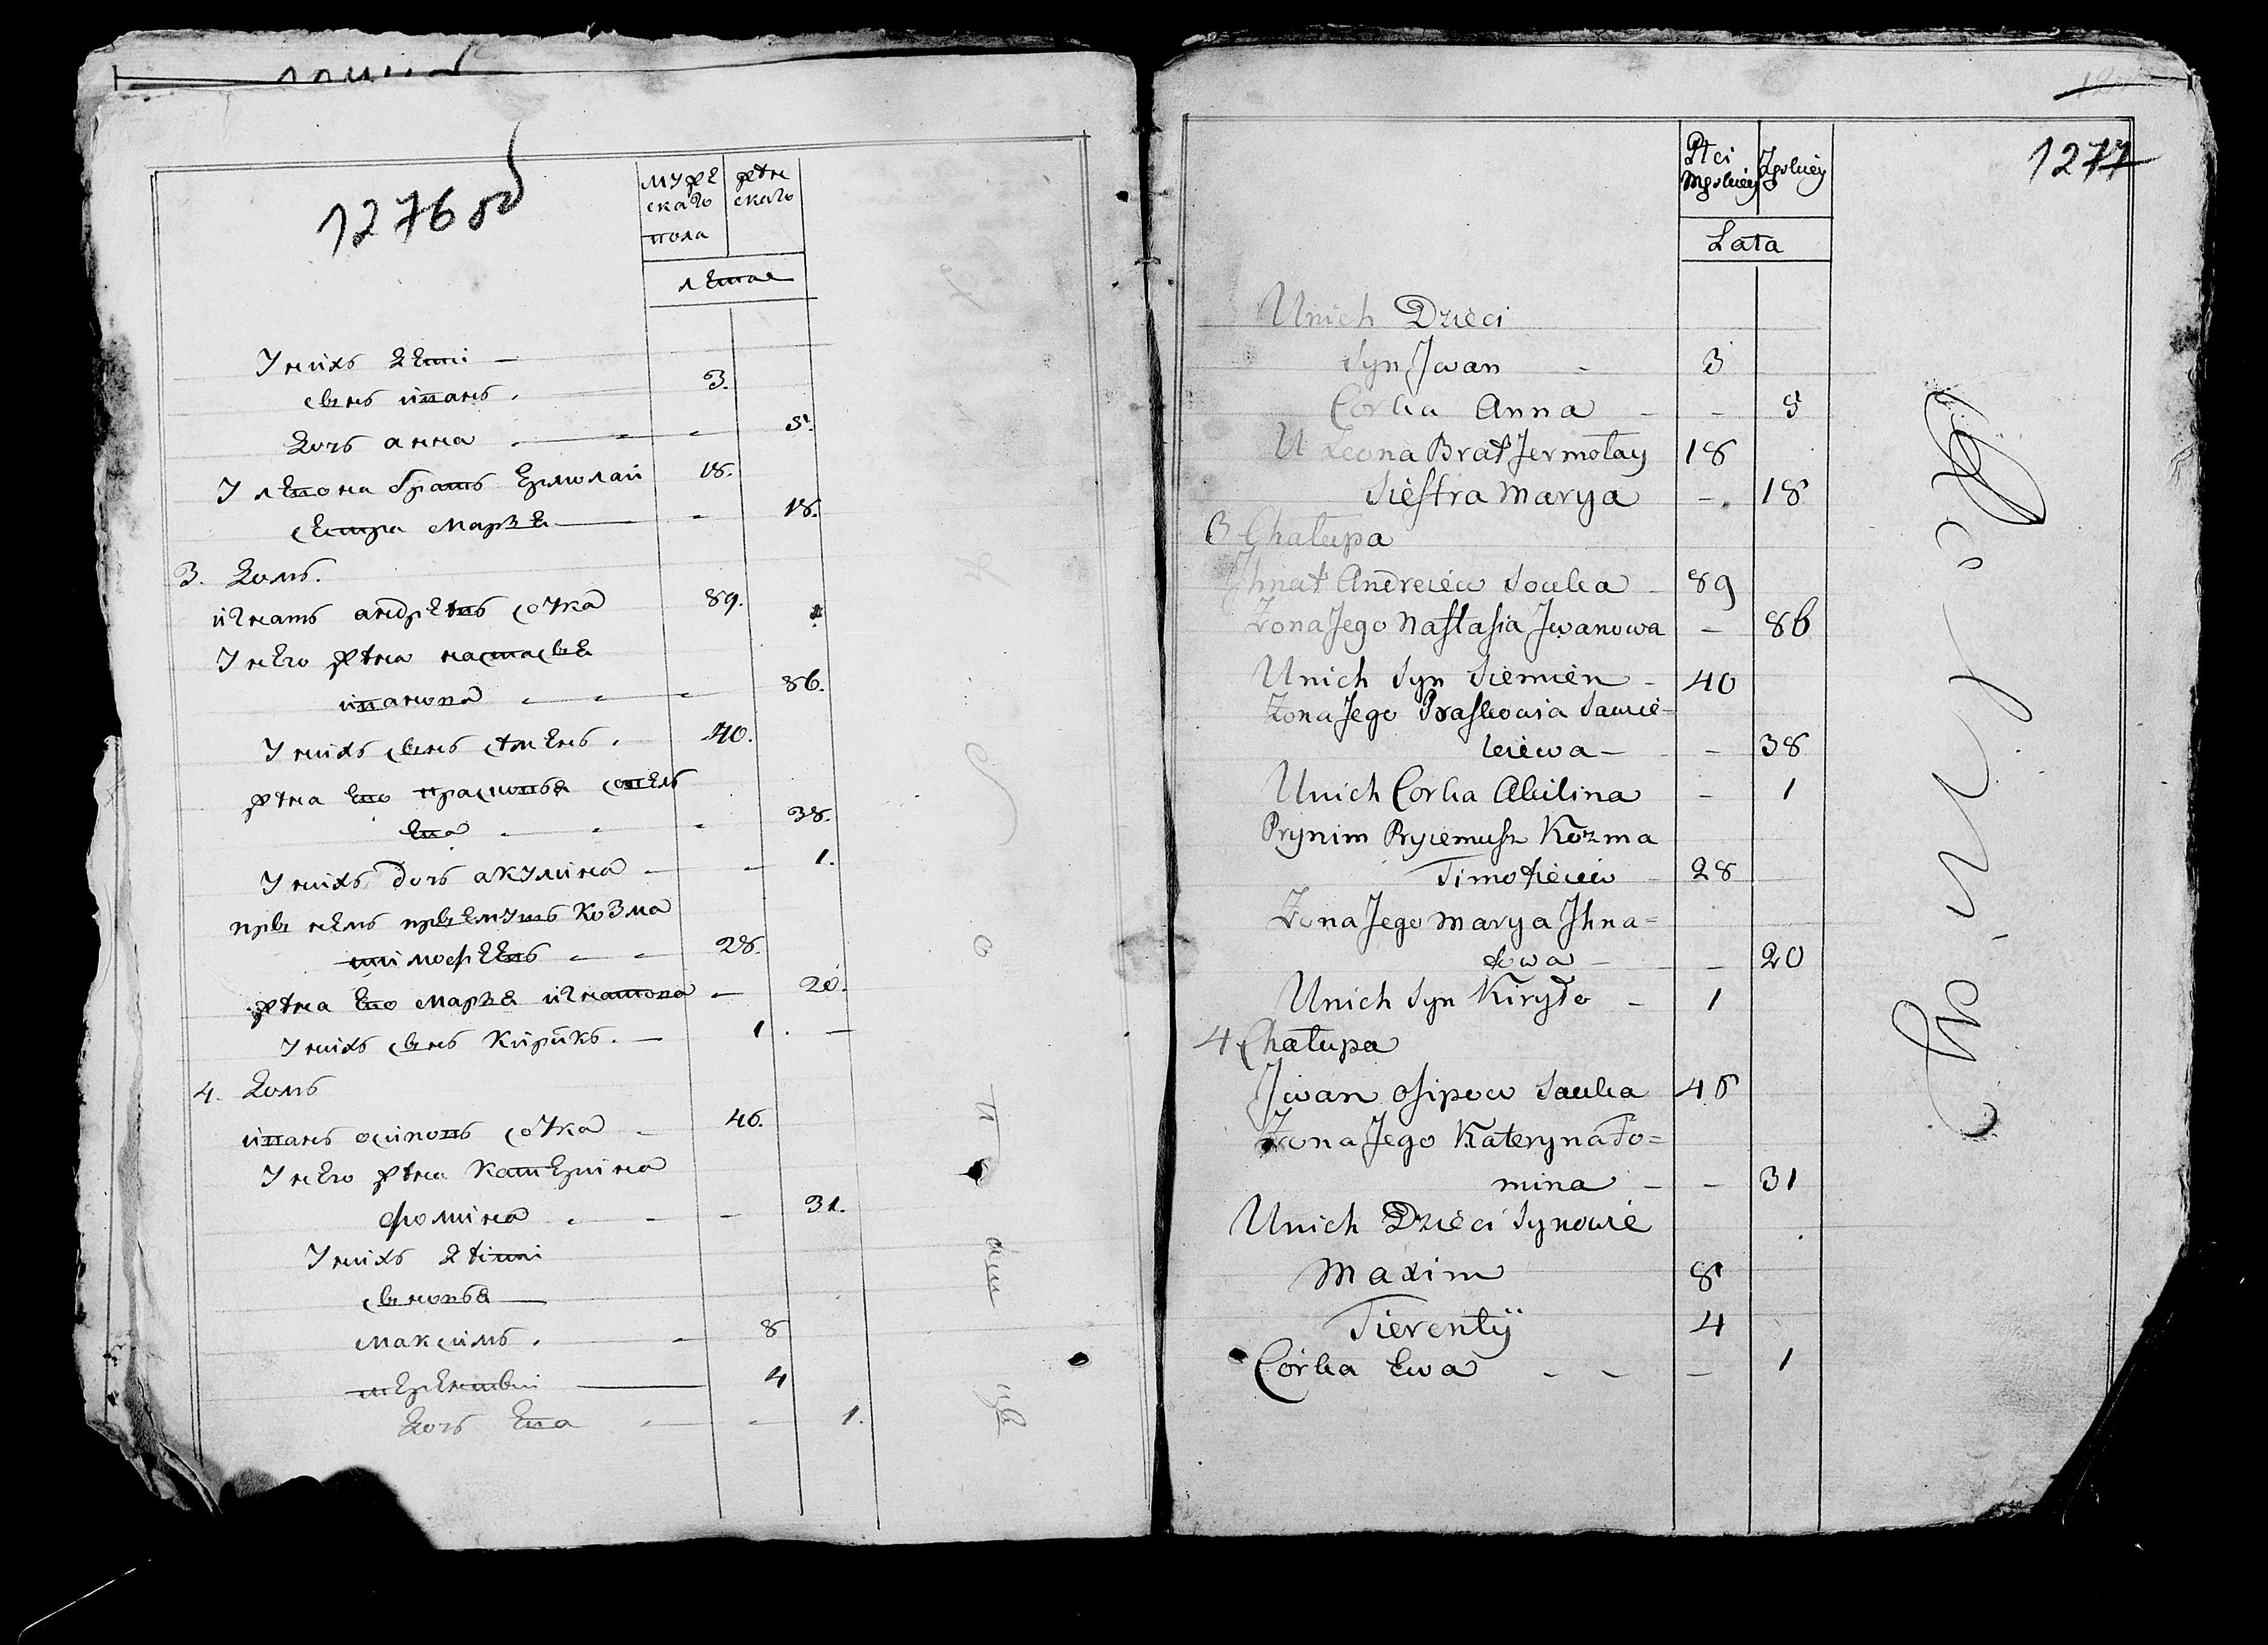 1276 об
мужескаго пола
женскаго
лета
У нихъ дети —
сынъ иванъ. 3.
дочь анна — 5.
У левона братъ Ермолай 18.
сестра Марья — 18.
3. домъ.
игнатъ андреевъ сочка 89.
У него жена настасья
иванова - - - 86.
У нихъ сынъ семенъ. 40.
жена Ево прасковья савель
Ева - - - 38.
У нихъ дочь акулина — — 1.
при немъ приемышъ козма
тимофеевъ — — 28.
жена Ево Марья игнатова — 20.
У нихъ сынъ Кирикъ. — 1. —
4. домъ
иванъ осиповъ сочка — 46.
У него жена Катерина
фомина - — — 31.
У нихъ дети
сыновья —
Максимъ. — 8
терентий — 4
дочь Ева — — 1.
1277
Płci Męskiey
Żeńskiey
Lata
U nich Dzieci
Syn Jwan - 3
Corka Anna — — 5
U Leona Brat Jermołay 18
Siestra Marya — 18
3 Chałupa
Jhnat Andreiew Soczka 89
Żona Jego Nastasia Jwanowa — 86
U nich Syn Siemien — 40
Żona Jego Praskowia Sawie=
leiewa — — 38
U nich Corka Akilina — 1
Prynim Pryiemusz Kozma
Timofieiew 28
Żona Jego Marya Jhna=
towa — — 20
U nich Syn Kiryło — 1
4 Chałupa
Jwan Osipow Soczka 46
Żona Jego Kateryna Fo=
mina — — 31
U nich Dzieci Synowie
Maxim 8
Tierentÿ 4
Córka Ewa - - — 1